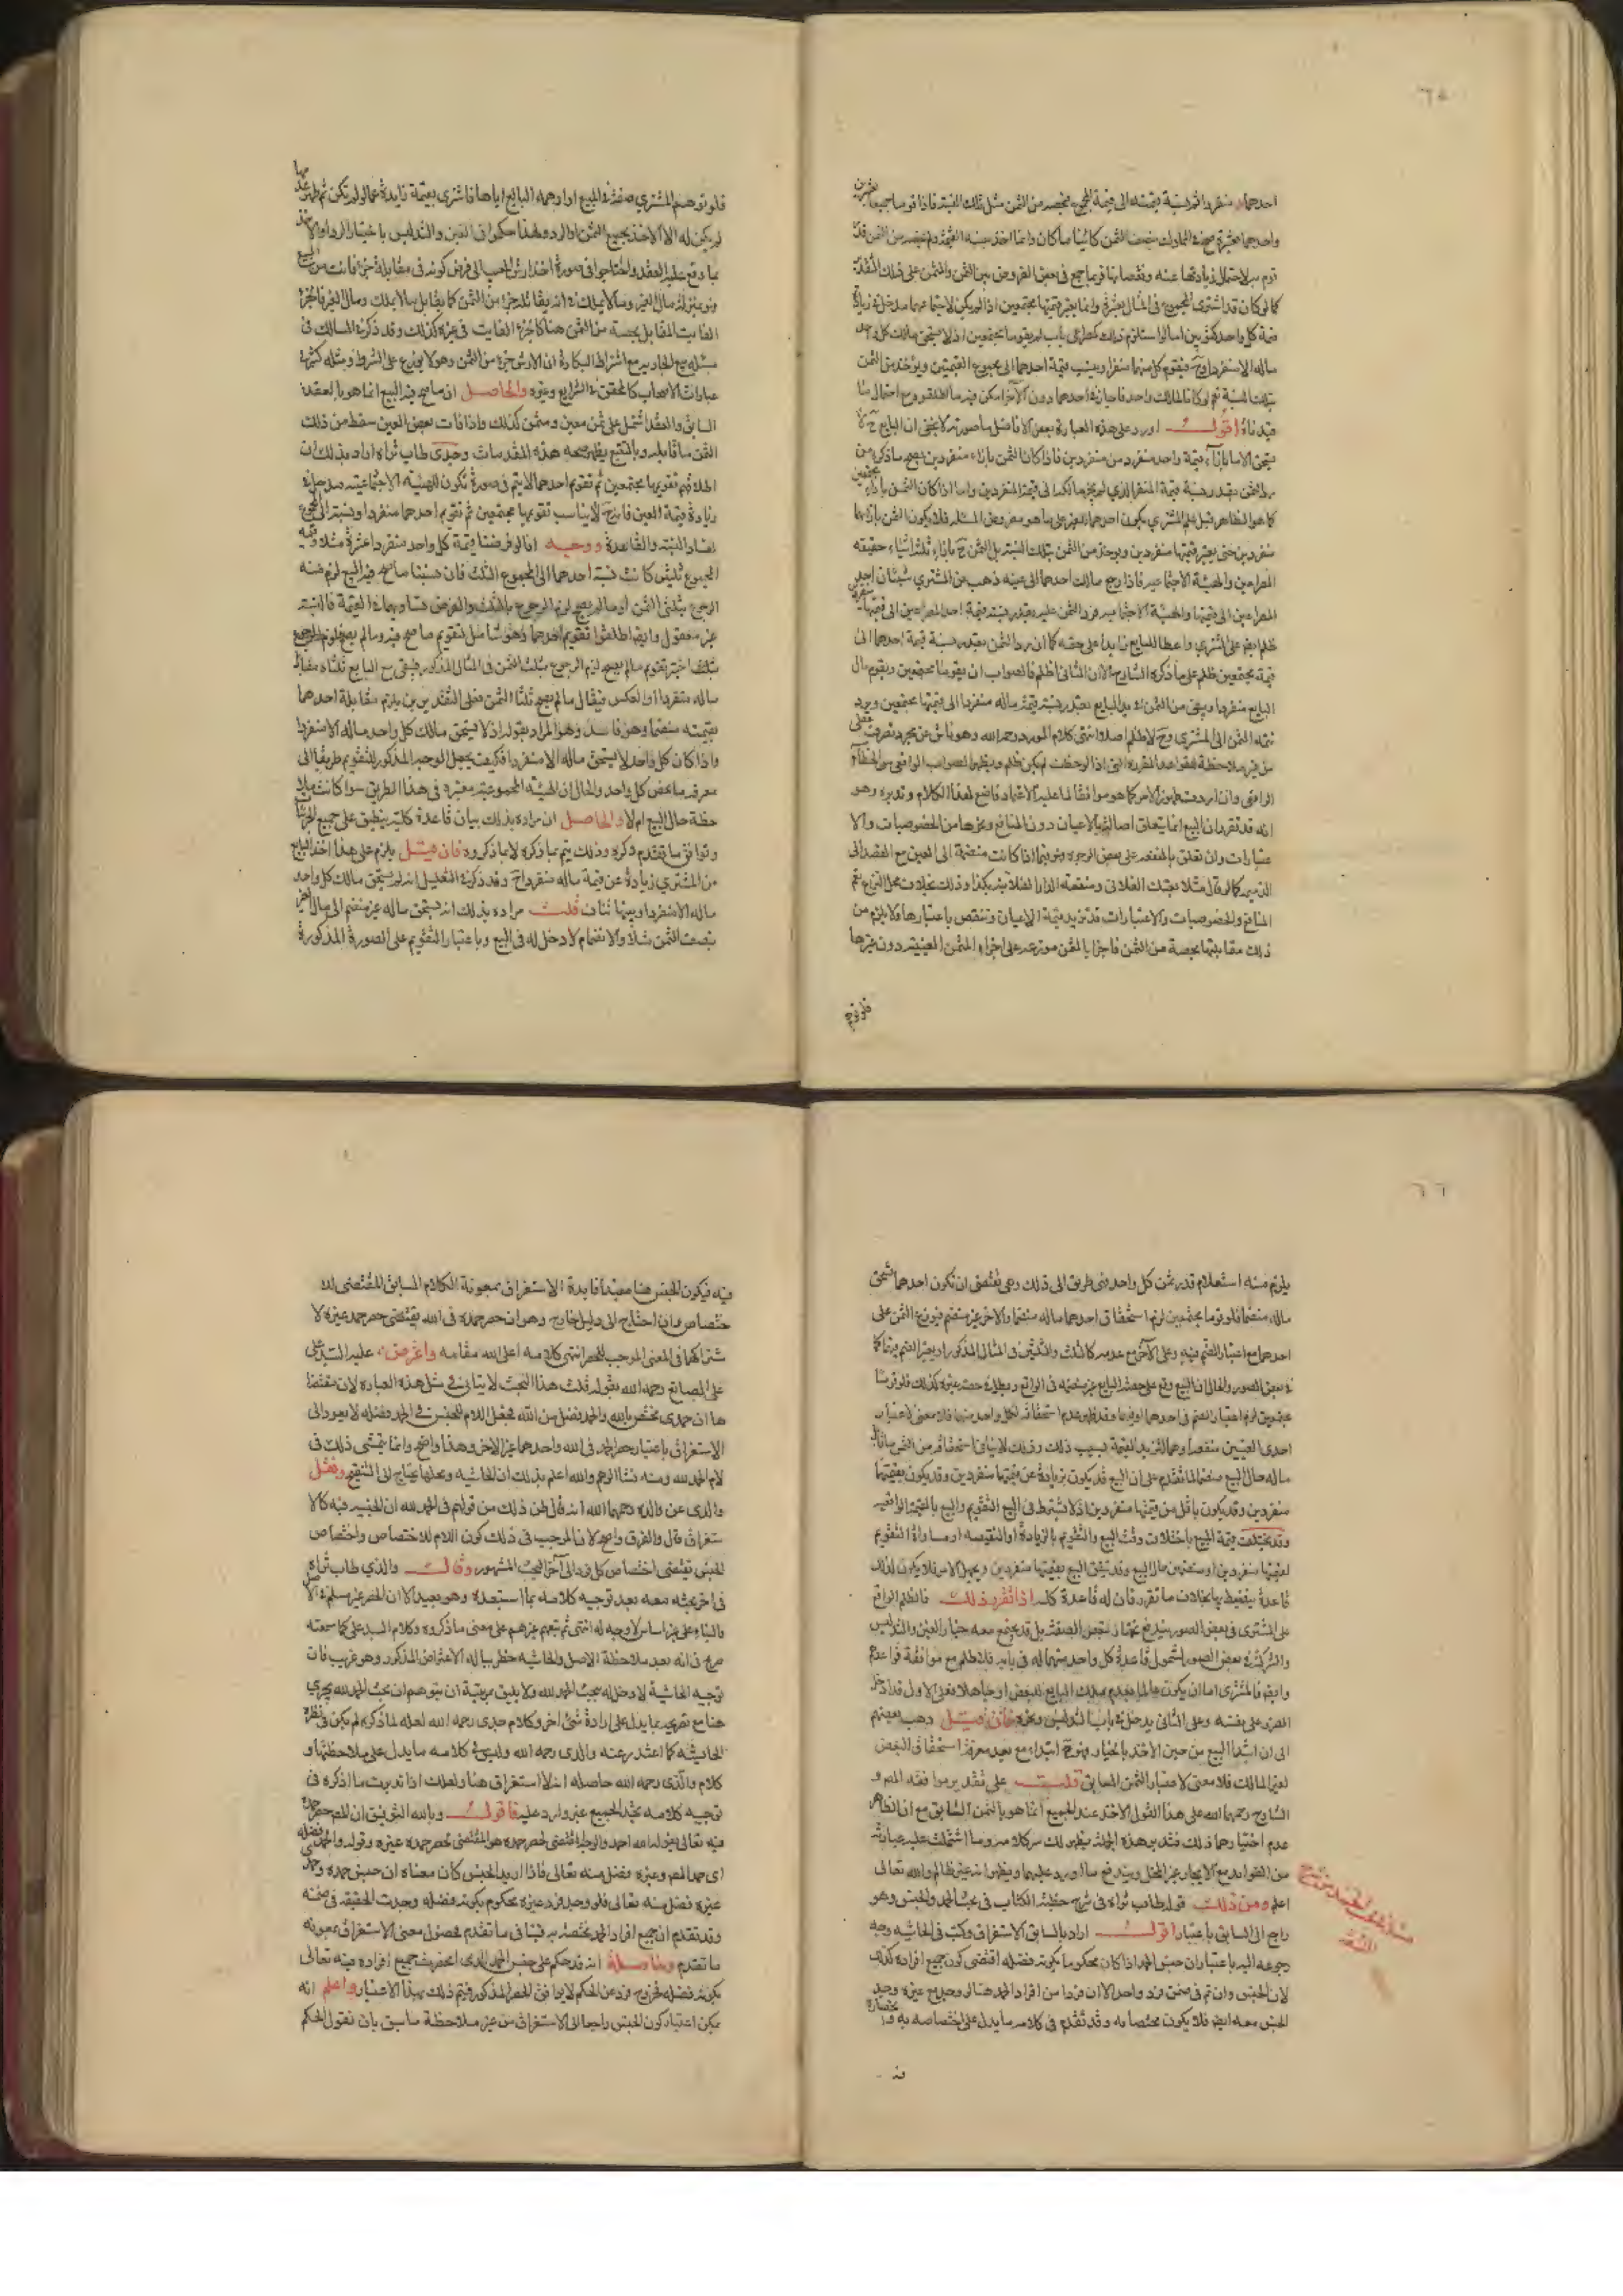 ٦٥
احدهما منفردا ثم نسبة قيمته الى قيمة المجموع فيخصه من الثمن مثل تلك النسبة فاذا قوما جميعا بعشرين
واحدهما بعشرة صح في المملوك بنصف الثمن كائنا ما كان وانما اخذ بنسبة القيمة ولم يخصه من الثمن قدر ما
قوم به لاحتمال زيادتها عنه ونقصانها فربما جمع في بعض الفروض بين الثمن والمثمن على ذلك التقدير
كما لو كان قد اشترى المجموع في المثال بعشرة وانما يعتبر قيمتهما مجتمعين اذا لم يكن لاجتماعهما مدخل في زيادة
قيمة كل واحد كثوبين اما لو استلزم ذلك كمصراعي باب لم يقوما مجتمعين اذ لا يستحق مالك كل واحد
ماله الا منفردا وح فيقوم كل منهما منفردا وينسب قيمة احدهما الى مجموع القيمتين ويؤخذ من الثمن
بتلك النسبة نعم لو كانا لمالك واحد فاجاز في احدهما دون الآخر امكن فيه ما اطلقوه مع احتمال ما
قيدناه اقول اورد على هذه العبارة بعض الافاضل ما صورته لا يخفى ان البايع ح لا
يستحق الا ما بازاء قيمة واحد منفرد من منفردين فاذا كان الثمن بازاء منفردين يصح ما ذكره من
رد الثمن بقدر نسبة قيمة المنفرد الذي لم يجز مالكه الى قيمة المنفردين واما اذا كان الثمن بازاء مجتمعين
كما هو الظاهر قبل علم المشتري بكون احدهما لغير على ما هو مفروض المسئلة فلا يكون الثمن بازائهما
منفردين حتى يعتبر قيمتهما منفردين ويؤخذ من الثمن بتلك النسبة بل الثمن ح بازاء ثلثة اشياء حقيقة
المصراعين والهيئة الاجتماعية فاذا رجع مالك احدهما الى عينه ذهب من المشتري شيئان احد
المصراعين الى قيمتها والهيئة الاجتماعية فرد الثمن عليه بقدر نسبة قيمة احد المصراعين الى قيمتهما منفردة
ظلم بغير على المشتري واعطاء للبايع زايدا على حقه كما ان رد الثمن بقدر نسبة قيمة احدهما الى
قيمة مجتمعين ظلم على ما ذكره الشارح الا ان الثاني اظلم فالصواب ان يقوما مجتمعين ويقوم مال
البايع منفردا ويبقى من الثمن في يد البايع بقدر نسبة قيمة ماله منفردا الى قيمتهما مجتمعين ويرد
تتمة الثمن الى المشتري وح لا ظلم اصلا انتهى كلام المورد رحمه الله وهو ناش عن مجرد تصرف عقلي
من غير ملاحظة لقواعد المقررة التي اذا لوحظت لم يكن ظلم ويظهر الصواب الوافي من الخطأ
الوافي وان اردت ظهور الامر كما هو موافقا لما عليه الاعتماد فاصغ لهذا الكلام وتدبره وهو
انه قد تقرر ان البيع انما يتعلق اصالة بالاعيان دون المنافع ونحوها من الخصوصيات والا
عتبارات وان تعلق بالمنفعة على بعض الوجوه وهو فيما اذا كانت منضمة الى العين مع القصد الى
الضميمة كما لو قال مثلا بعتك الفلاني ومنفعة الدار الفلانية بكذا وذلك بخلاف محل النزاع نعم
المنافع والخصوصيات والاعتبارات قد تزيد قيمة الاعيان وتنقص باعتبارها ولا يلزم من
ذلك مقابلتها بحصة من الثمن فاجزاء الثمن موزعة على اجزاء المثمن العينية دون غيرها
فلو توهم
فلو توهم المشتري صفة في المبيع او اوهمه البايع اياها فاشترى بقيمة زايدة عما لو لم تكن ثم ظهر عدمها
لم يكن له الا الاخذ بجميع الثمن او الرد ولهذا حكموا في الغبن والتدليس باختيار الرد او الاخذ
بما وقع عليه العقد واحتاجوا في صورة اخذ ارش العيب الى فرض كونه في مقابلة جزء فائت من المبيع
وهو بمنزلة مال الغير وما لا يملك في انه يقابله جزء من الثمن كما يقابل ما لا يملك ومال الغير فالجزء
الفايت المقابل بحصة من الثمن هنا كالجزء الفايت في غيره كذلك وقد ذكر في المسالك في
مسئلة بيع الجارية مع اشتراط البكارة ان الارش جزء من الثمن وهو لا يوزع على الشرط ومثله كثير في
عبارات الاصحاب كالمحقق في الشرايع وغيره والحاصل ان ما صح فيه البيع انما هو بالعقد
السابق والعقد اشتمل على ثمن معين ومثمن كذلك واذا فات بعض العين سقط من ذلك
الثمن ما قابله وبالتتبع يظهر صحة هذه المقدمات وجدى طاب ثراه اراد بذلك ان
اطلاقهم تقويمها مجتمعين ثم تقويم احدهما لا يتم في صورة تكون للهيئة الاجتماعية مدخل في
زيادة قيمة العين فانه ح لا يناسب تقويمهما مجتمعين ثم تقويم احدهما منفردا ونسبته الى المجموع
لفساد النسبة والقاعدة ووجهه انا لو فرضنا قيمة كل واحد منفردا عشرة مثلا وقيمة
المجموع ثلثين كانت نسبة احدهما الى المجموع الثلث فان نسبنا ما صح فيه البيع لزم منه
الرجوع بثلثي الثمن او ما لم يصح لزم الرجوع بالثلث والفرض تساويهما في القيمة فالنسبة
غير معقولة وايضا اطلقوا تقويم احدهما وهو شامل لتقويم ما صح فيه وما لم يصح فلو
ماله منفردا او بالعكس فيقال ما لم يصح ثلثا الثمن فعلى التقديرين يلزم مقابلة احدهما
بقيمته منضما وهو فاسد وهو المراد بقوله اذ لا يستحق مالك كل واحد ماله الا منفردا
واذا كان كل واحد لا يستحق ماله الا منفردا فكيف يجعل الوجه المذكور للتقويم طريقا الى
معرفة ما يخص كل واحد والحال ان الهيئة المجموعية معتبرة في هذا الطريق سوا كانت ملا
حظة حال البيع ام لا والحاصل ان مراده بذلك بيان قاعدة كلية ينطبق على جميع الجزئيات
وتوافق ما تقدم ذكره وذلك يتم بما ذكره لا بما ذكروه فان قيل يلزم على هذا اخذ البايع
من المشتري زيادة عن قيمة ماله منفردا ح وقد ذكر في التعليل انه لم يستحق مالك كل واحد
ماله الا منفردا وبينهما تناف قلت مراده بذلك انه يستحق ماله غير منضم الى مال الغير
بنصف الثمن مثلا والانضمام لا دخل له في البيع وباعتبار التقويم على الصورة المذكورة
٦٦
يلزم منه استعلام قدر ثمن كل واحد فهي طريق الى ذلك وهي تقتضي ان تكون احدهما يستحق
ماله منضما فلو قوما مجتمعين لزم استحقاق احدهما ماله منضما والاخر غير منضم فيوزع الثمن على
احدهما مع اعتبار الضم فيه وعلى الآخر مع عدمه كالثلث والثلثين في المثال المذكور او يعتبر الضم فيهما كما
في بعض الصور والحال ان البيع وقع على حصة البايع غير منضمة في الواقع وبطل في حصة غيره كذلك فلو قوما
مجتمعين لزم اعتبار الضم في احدهما او فيهما وقد ظهر عدم استحقاقه لكل واحد منهما فلا معنى لاعتبار
احدى العينين منضما وهما لتزيد القيمة بسبب ذلك وذلك لا ينافي استحقاقه من الثمن ما قابل
ماله حال البيع منضما لما تقدم على ان البيع قد يكون بزيادة عن قيمتهما منفردين وقد يكون بقيمتهما
منفردين وقد يكون باقل من قيمتهما منفردين اذ لا يشترط في البيع التقويم والبيع بالقيمة الواقعية
وقد يختلف قيمة المبيع باختلاف وقت البيع والتقويم بالزيادة او النقيصة او مساواة التقويم
لقيمتهما منفردين او مجتمعين حال البيع وقد يتفق البيع بقيمتهما منفردين ويجهل الامر فلا يكون لذلك
قاعدة ينضبط بها بخلاف ما تقرر فان له قاعدة كلية اذا تقرر ذلك فالظلم الواقع
على المشتري في بعض الصور يندفع بخيار تبعض الصفقة بل قد يجتمع معه خيار الغبن والتدليس
والشركة في بعض الصور لشمول قاعدة كل واحد منهما له في بابه فلا ظلم مع موافقة قواعدهم
وايضا فالمشتري اما ان يكون عالما بعدم ملك البايع للبعض او جاهلا فعلى الاول قد ادخل
الضرر على نفسه وعلى الثاني يدخل في باب التدليس ونحوه فان قيل ذهب بعضهم
الى ان ابتداء البيع من حين الاخذ بالخيار فهو ح ابتداء مع بعد معرفة استحقاق البعض
لغير المالك فلا معنى لاعتبار الثمن السابق قلت على تقدير موافقة المص و
الشارح رحمهما الله على هذا القول الاخذ عند الجميع انما هو بالثمن السابق مع ان الظاهر
عدم اختيارهما ذلك فتدبر هذه الجملة يظهر لك سر كلامه وما اشتملت عليه عبارته
من الفوايد مع الايجاز غير المخل ويندفع ما اورد عليهما ويظهر انه غير ظالم والله تعالى
اعلم ومن ذلك قوله طاب ثراه في شرح خطبة الكتاب في بحث الحمد والجنس وهو
راجع الى السابق باعتبار اقول اراد بالسابق الاستغراق وكتب في الحاشية وجه
رجوعه اليه باعتبار ان جنس الحمد اذا كان محكوما بكونه فضله اقتضى كون جميع افراده كذلك
لان الجنس وان تم في ضمن فرد واحد الا ان فردا من افراد الحمد هنا لو وجد مع غيره وجد
الجنس معه ايضا فلا يكون مختصا به وقد تقدم في كلامه ما يدل على اختصاصه به وانحصاره
فيه
فيه فيكون الجنس هنا مفيدا فايدة الاستغراق بمعونة الكلام السابق المقتضى للا
ختصاص وان احتاج الى دليل خارج وهو ان حصر حمده في الله يقتضي حصر حمد غيره لا
شتراكهما في المعنى الموجب للحصر انتهى كلامه اعلى الله مقامه واعترض عليه السيد على
على الصائغ رحمه الله بقوله قلت هذا البحث لا يتاتى في مثل هذه العبارة لان مقتضا
ها ان حمدى مختص بالله والحمد بفضل من الله فجعل اللام للجنس في الحمد وفضله لا يعود الى
الاستغراق باعتبار حصر الحمد في الله واحدهما غير الاخر وهذا واضح وانما يتمشى ذلك في
لام الحمد لله ومنه نشا الوهم والله اعلم بذلك ان الحاشية ومحلها يحتاج الى التنقيح ونقل
والدى عن والده رحمهما الله انه قال ظن ذلك من قولهم في الحمد لله ان الجنس فيه كالا
ستغراق قال والفرق واضح لان الموجب في ذلك كون اللام للاختصاص واختصاص
الجنس يقتضي اختصاص كل فرد الى آخر البحث المشهور وقال والدي طاب ثراه
في اخر بحثه معه بعد توجيه كلامه بما استبعده وهو بعيد لان الحصر غير مسلم في الاصل
والبناء على غير اساس لا وجه له انتهى ثم تبعهم غيرهم على معنى ما ذكروه وكلام السيد على كما سمعته
صريح في انه بعد ملاحظة الاصل والحاشية خطر بباله الاعتراض المذكور وهو غريب فان
توجيه الحاشية لا دخل له ببحث الحمد لله ولا يليق بمرتبته ان يتوهم ان بحث الحمد لله يجري
هنا مع تصريحه بما يدل على ارادة شئ اخر وكلام جدى رحمه الله لعله لما ذكره لم يكن في نظره
الحاشية كما اعتذر عنه والدى رحمه الله وليس في كلامه ما يدل على ملاحظتها و
كلام والدى رحمه الله حاصله انه لا استغراق هنا ولعلك اذا تدبرت ما اذكره في
توجيه كلامه تجد الجميع غير وارد عليه فاقول وبالله التوفيق ان المص حصر حمده
فيه تعالى بقوله الله احمد والوجه المقتضى لحصر حمده هو المقتضى لحصر حمد غيره وقوله والحمد فضله
اى حمد المص وغيره وفضل منه تعالى فاذا اريد الجنس كان معناه ان جنس حمده وحمد
غيره فضل منه تعالى فلو وجد فرد غيره محكوم بكونه فضله وجدت الحقيقة في ضمنه
وقد تقدم ان جميع افراد الحمد مختصة به فينافي ما تقدم فحصول معنى الاستغراق بمعونة
ما تقدم وحاصله انه قد حكم على جنس الحمد الذى انحصرت جميع افراده فيه تعالى
بكونه فضله فخروج فرد عن الحكم لا يوافق الحصر المذكور فيتم ذلك بهذا الاعتبار واعلم انه
يمكن اعتبار كون الجنس راجعا الى الاستغراق من غير ملاحظة ما سبق بان نقول الحكم